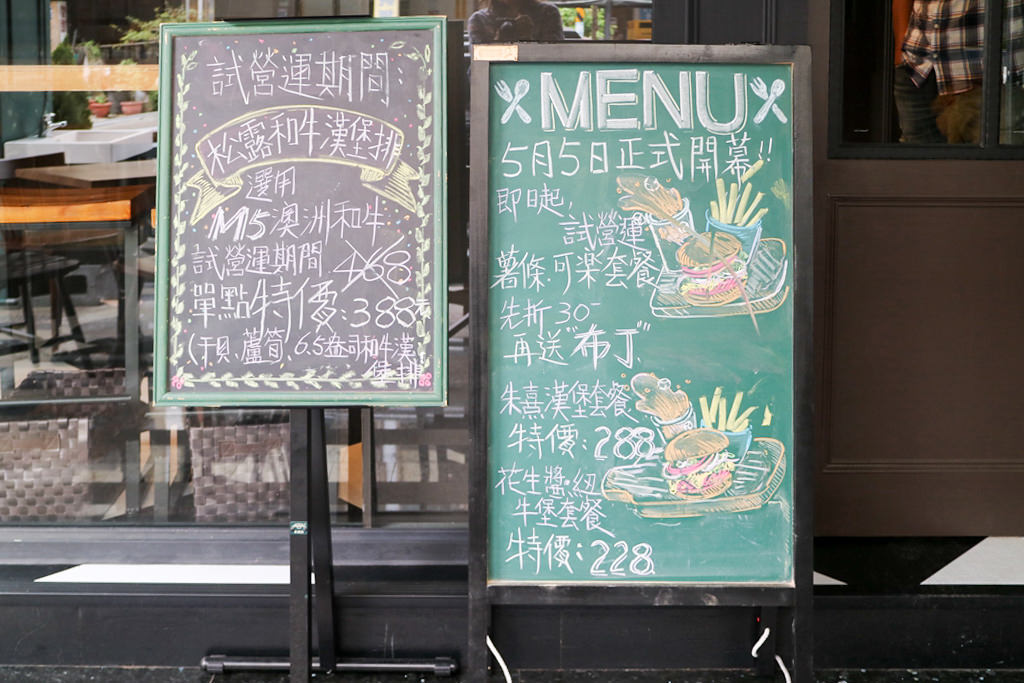 試營運期間:
松露和牛漢堡排
選用
M5澳洲和牛
試營運期間 468
單點特價:388元
(干貝、蘆筍、6.5盎司和牛漢
堡排
MENU
5月5日正式開幕!!
即日起,
試營運
薯條.可樂套餐
先折30-
再送"布丁"
朱熹漢堡套餐
特價:288
花生醬.紐
牛堡套餐
特價:228